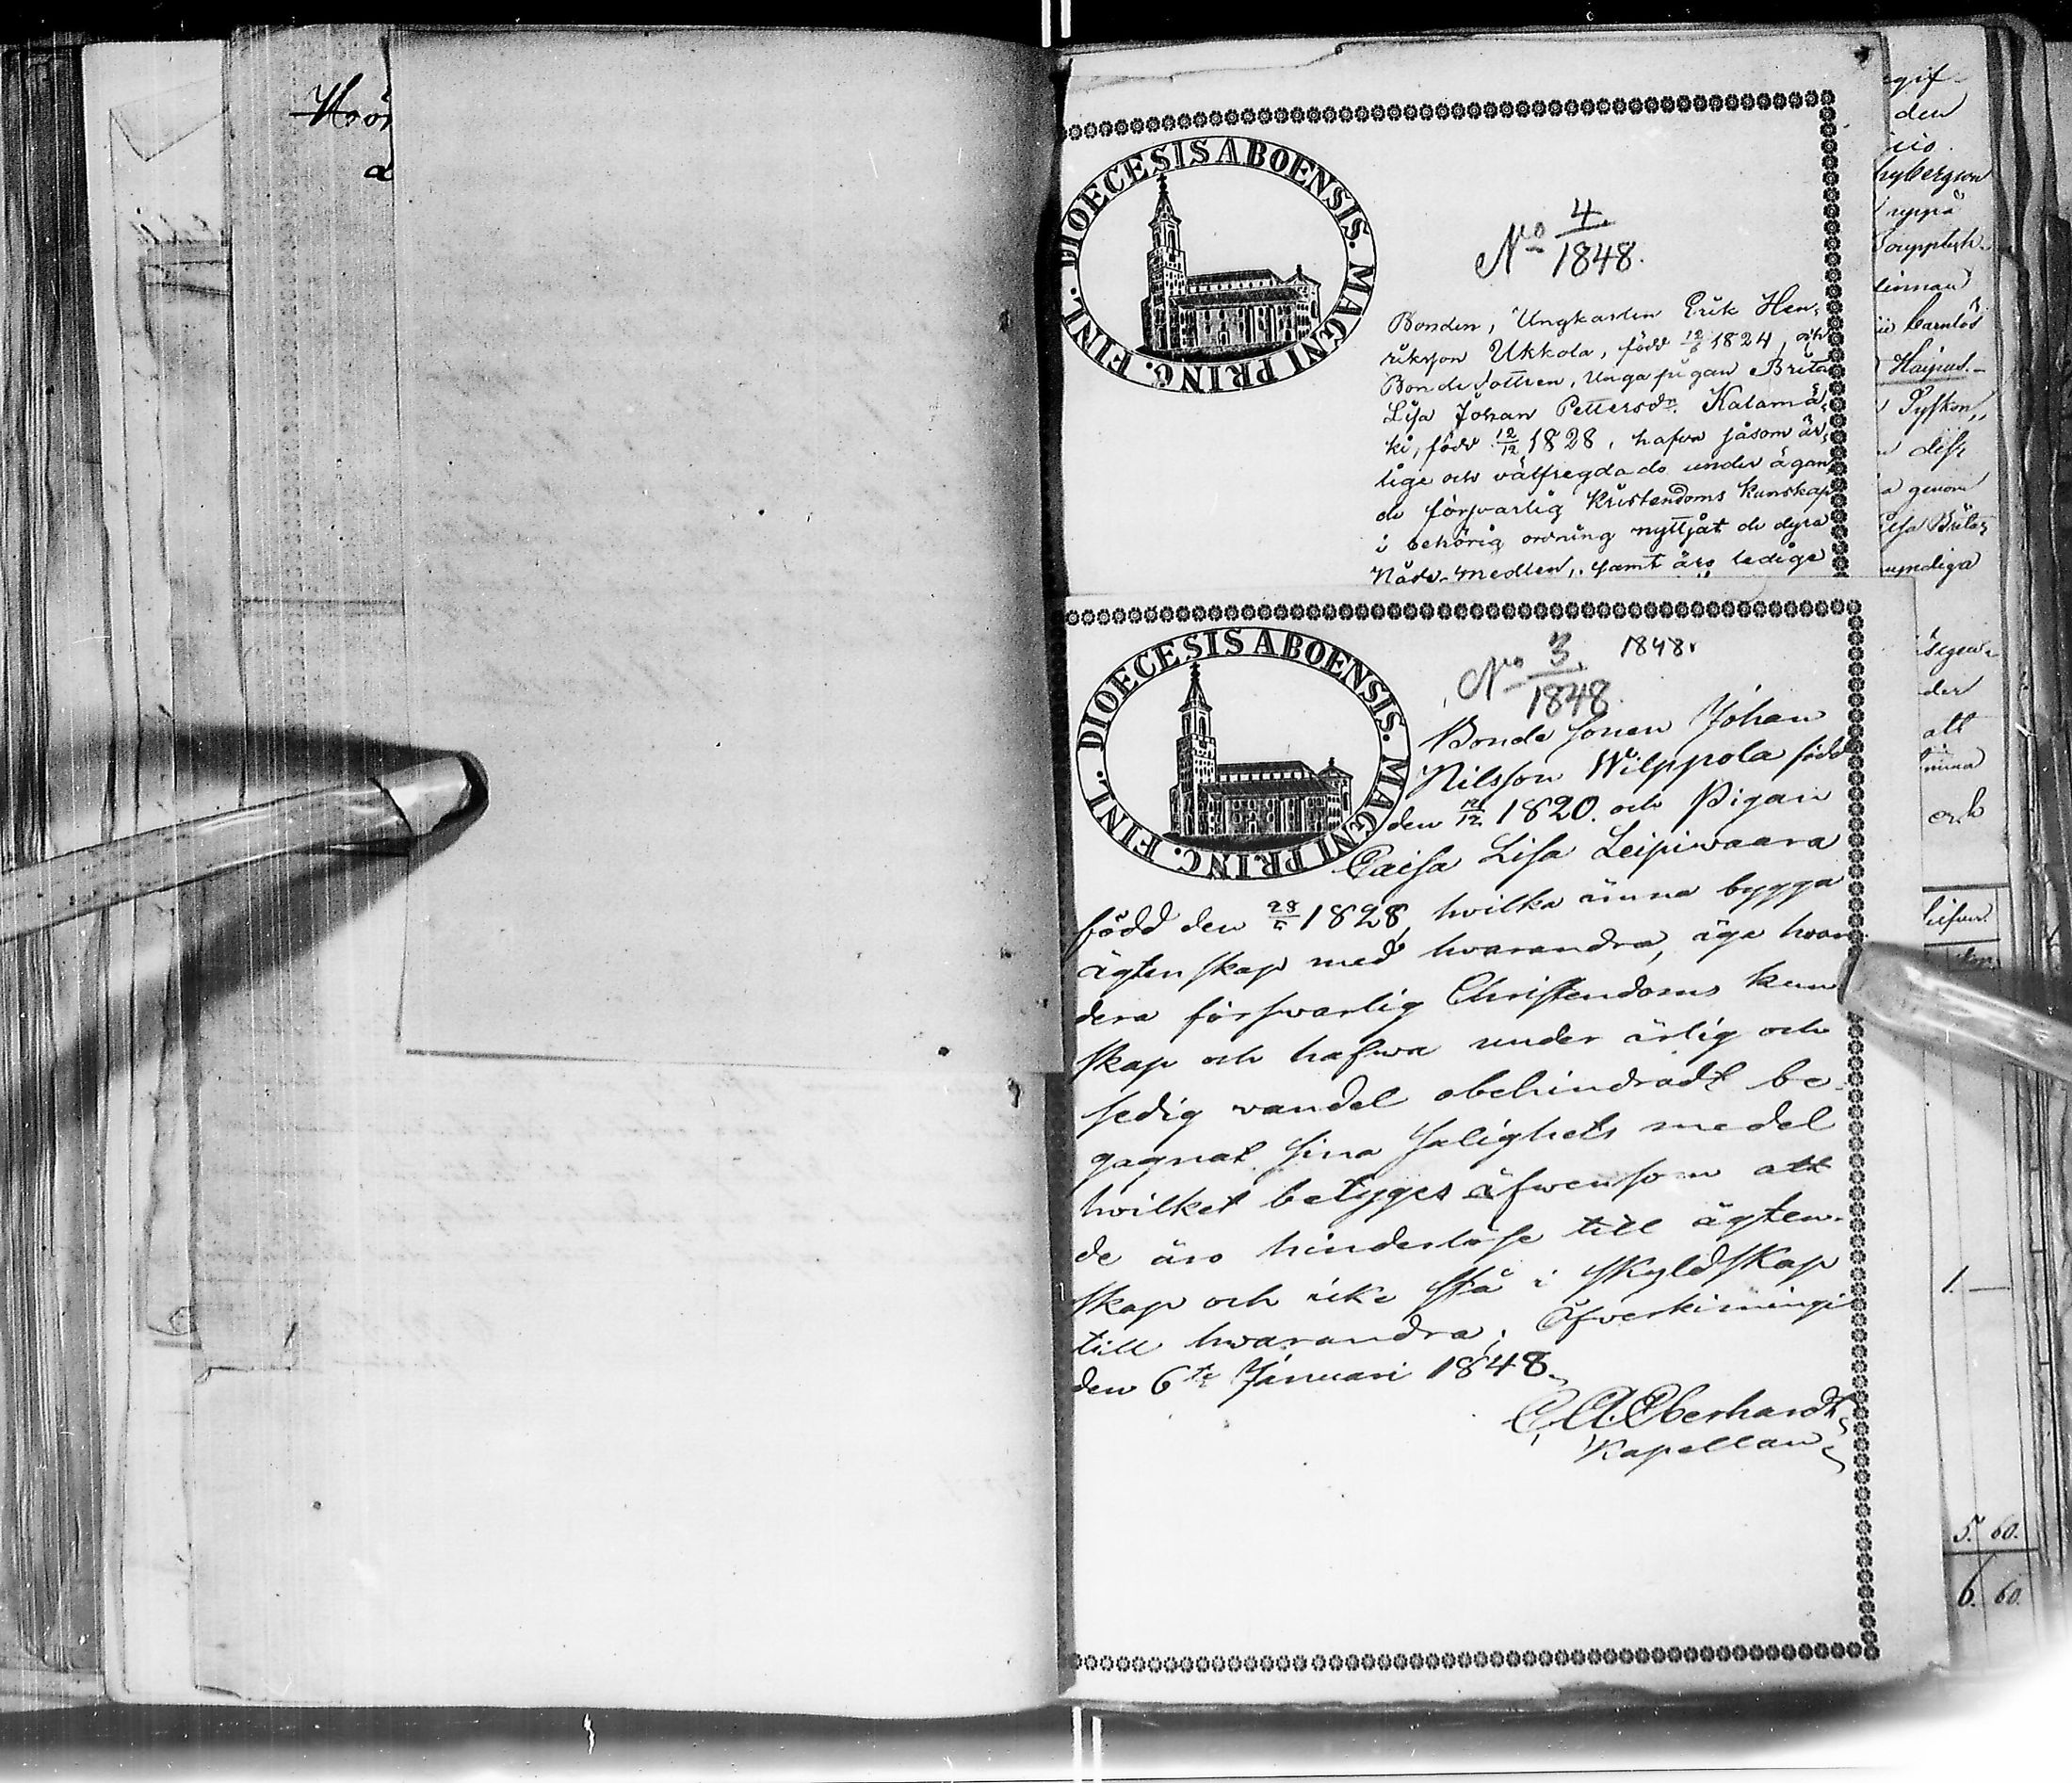 DIOECESIS ABOENSIS. MAGNI PRINC. FINL.
No 4/1848.
Bonden, Ungkarlen Erik Hen,
riksson Ukkola, född 12/6 1824, och
Bondedottren, Unga pigan Brita
Lisa Johan Pettersdr. Kalamä,
ki, född 12/12 1828, hafva såsom är,
lige och välfregdade under ägan,
de försvarlig Kristendoms kunskap
i behörig ordning nyttjat de dyra
Nåde-medlen, samt äro ledige
DIOECESIS ABOENSIS. MAGNI PRINC. FINL.
No 3/1848. 1848.
Bonde sonen Johan
Nilsson Wilppola född
den 1820. och Pigan
Caisa Lisa Leipiwaara
född den 1828, hvilka ämna bygga
ägtenskap med hwarandra, äga hvar
dera försvarlig Christendoms kun
skap och hafwa under ärlig och
sedig vandel obehindradt be-
gagnat sina salighets medel
hvilket betyges äfwensom att
de äro hinderlöse till ägten-
skap och icke stå i skyldskap
till hwarandra; Öfverkiimingi
den 6te Januari 1848.
C. A. Eberhardt,
Kapellan
den
Haipus.-
genom
myndiga
der
att
och
1. —
5. 60.
6. 60.